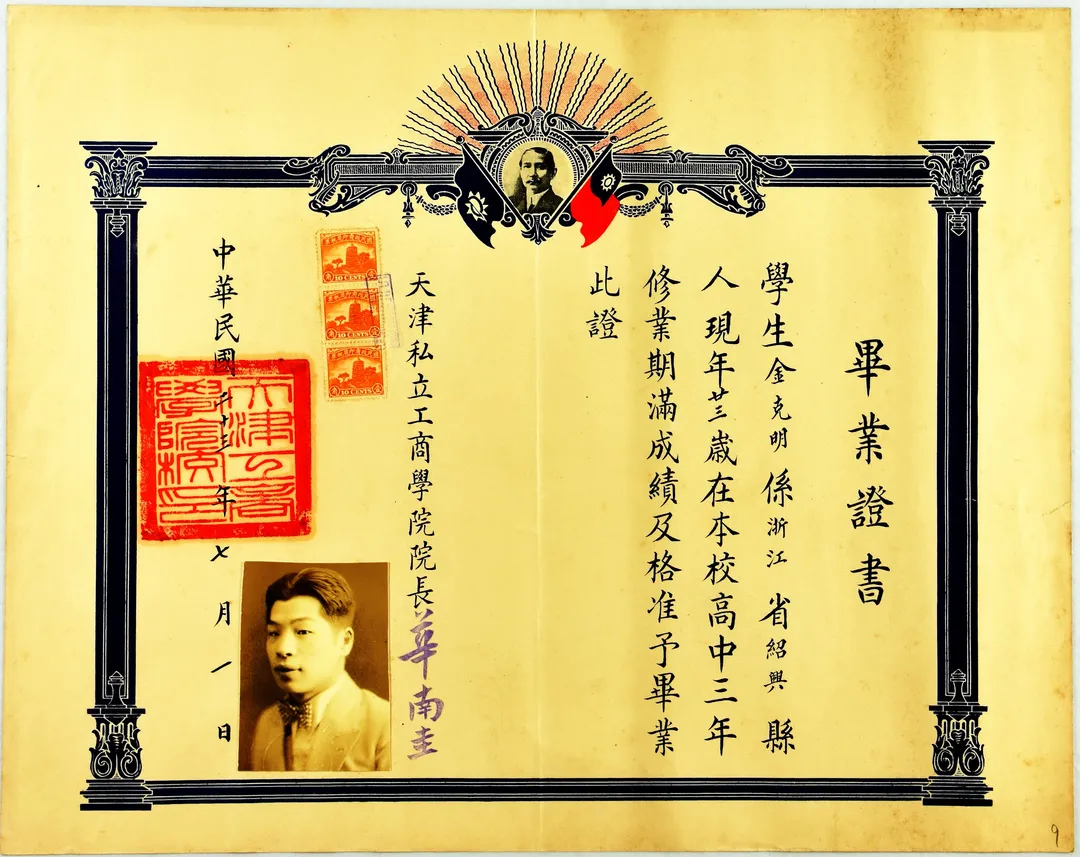 畢業證書
學生金克明係浙江省紹興縣
人現年廿三歲在本校高中三年
修業期滿成績及格准予畢業
此證
天津私立工商學院院長華南圭
10 CENTS
10 CENTS
10 CENTS
中華民國二十三年七月一日
天津工商
學院
9